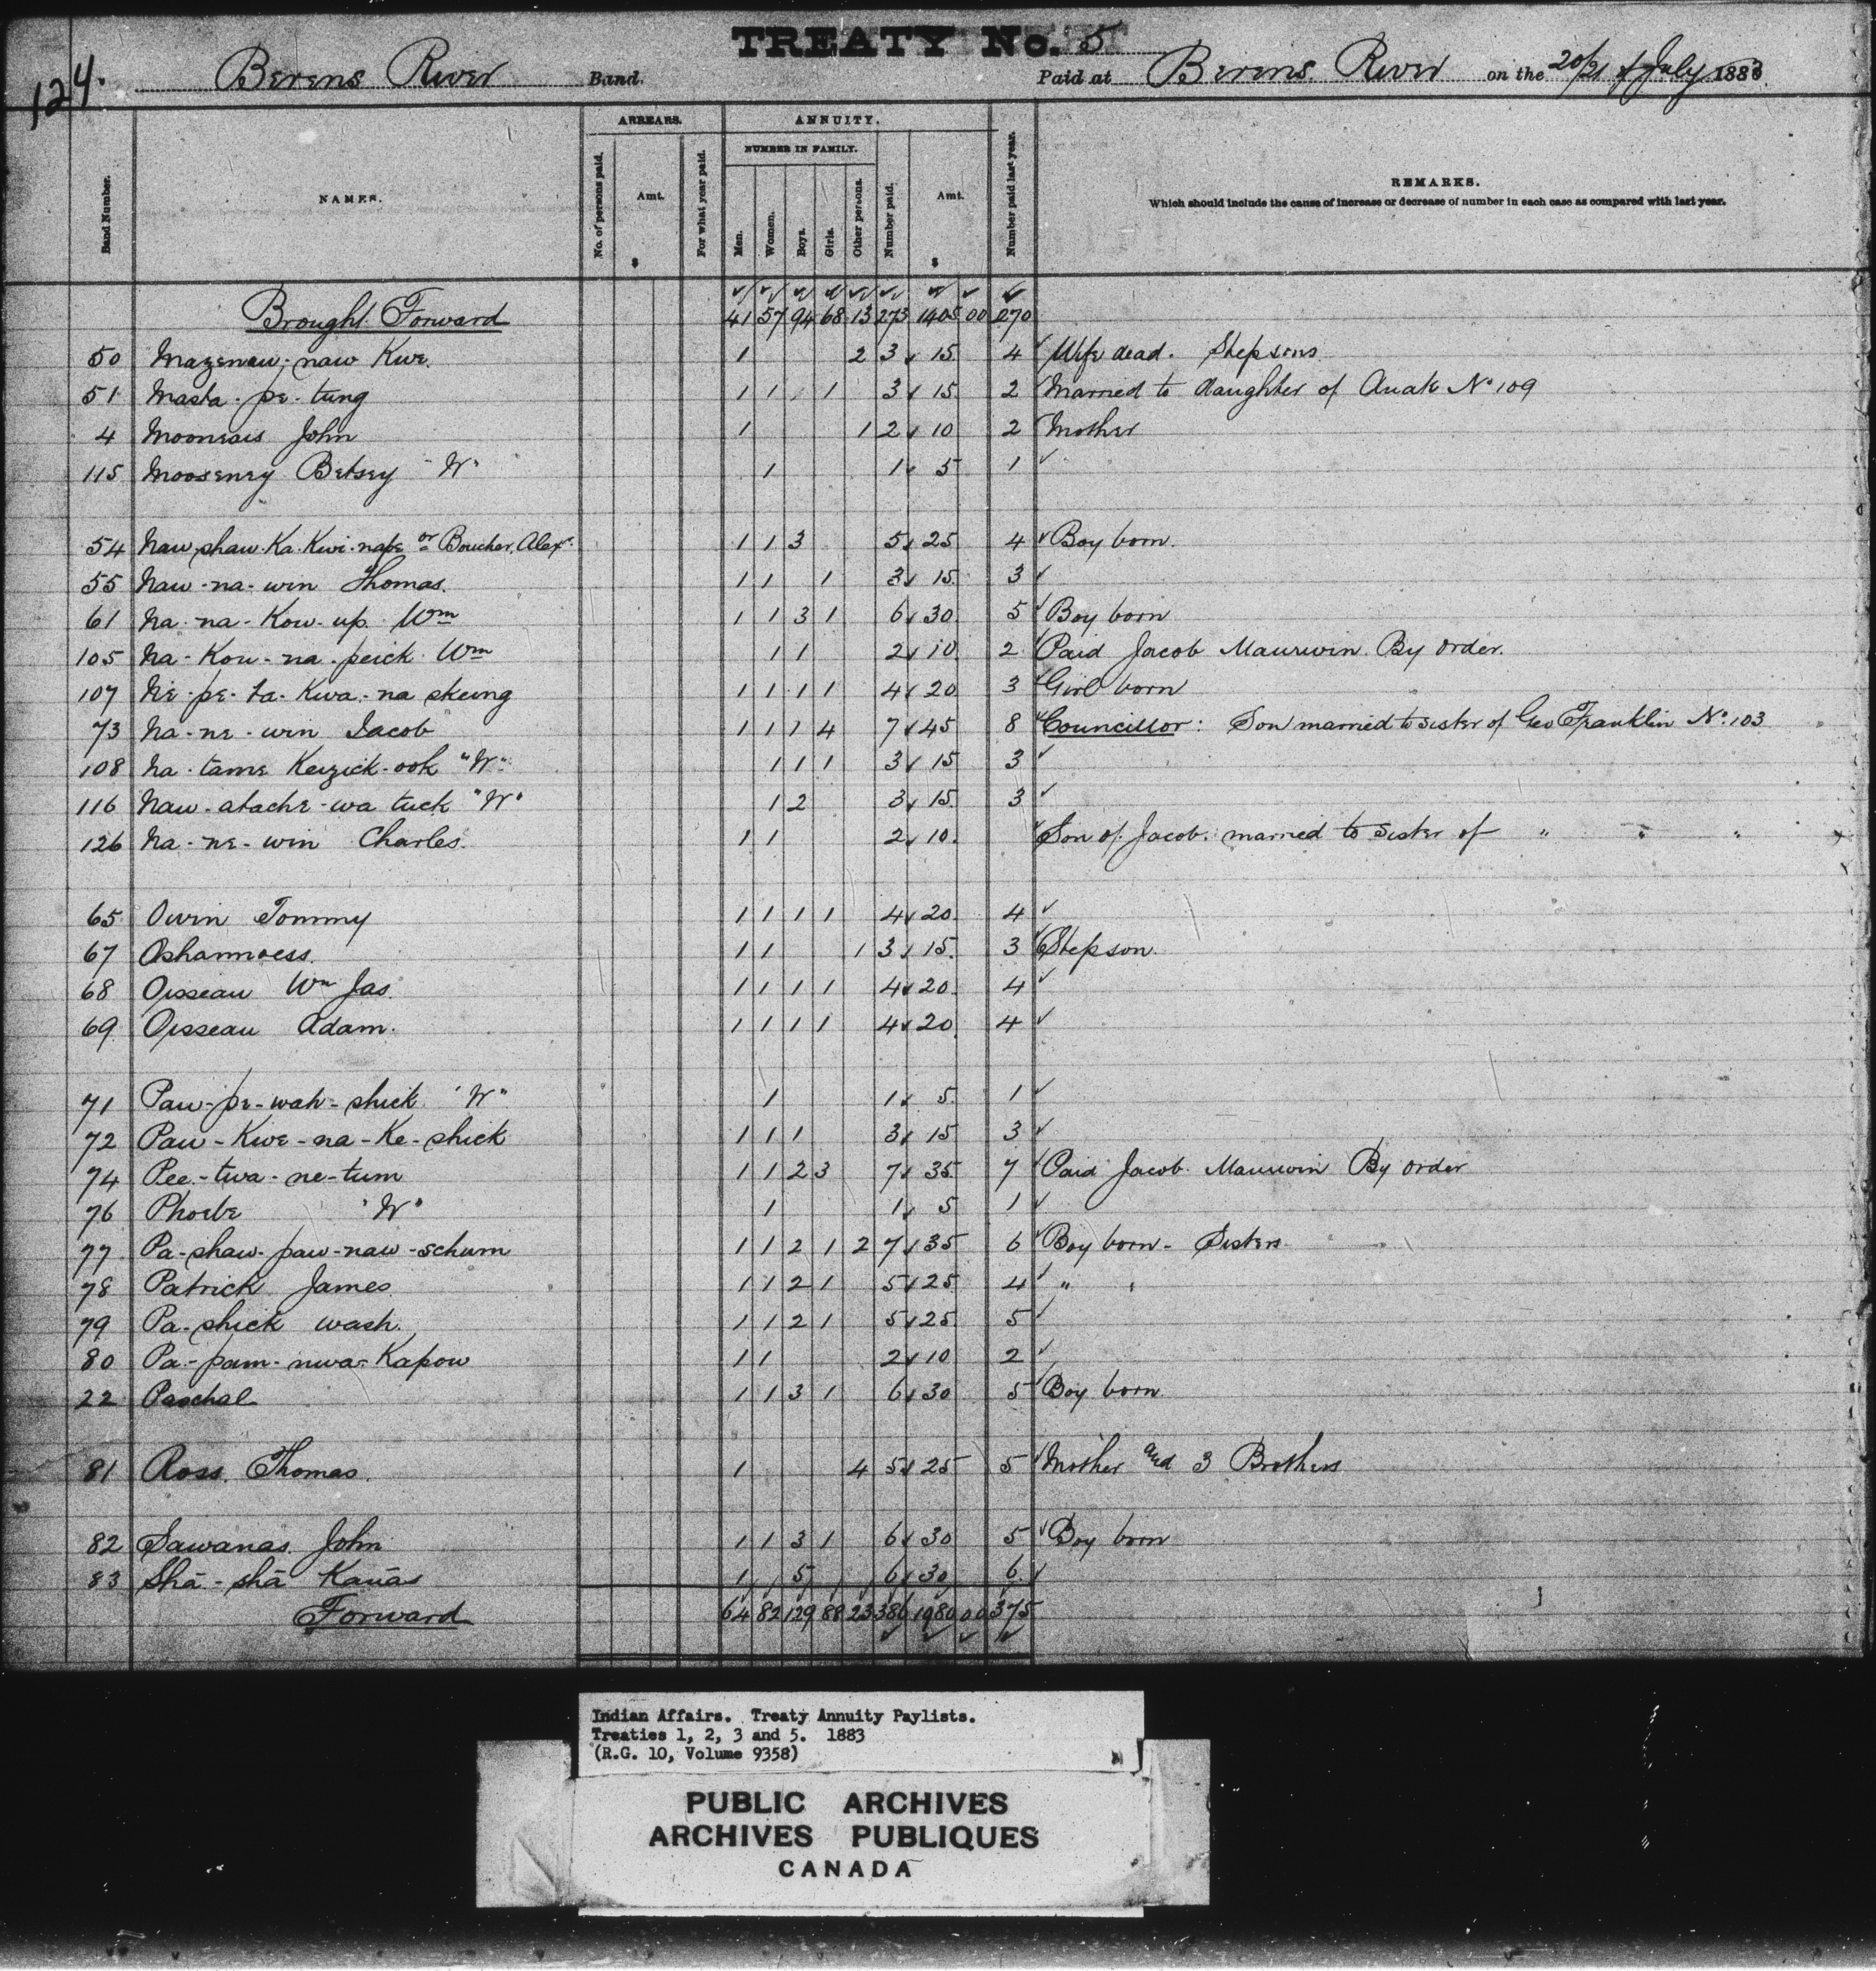 TREATY No. 5
124.
Berens River Band. Paid at Berens River on the 20/21 of July 1883
Band Number. NAMES. ARREARS. No. of persons paid. Amt. $ For what year paid. ANNUITY. NUMBER IN FAMILY. Men. Women. Boys. Girls. Other persons. Number paid. Amt. $ Number paid last year. REMARKS.
Which should include the cause of increase or decrease of number in each case as compared with last year.
Brought Forward 41 57 94 68 13 273 1405 00 270
50 Mazenaw-naw Kwe. 1 2 3 15 4 Wife dead. Stepsons
51 Masta-pe-tung 1 1 1 3 15 2 Married to daughter of Anak No 109
4 Mooneais John 1 1 2 10 2 Mother
115 Mooseney Betsey "W" 1 1 5 1
54 Naw-shaw-Ka-Kwi-nape or Boucher, Alex. 1 1 3 5 25 4 Boy born.
55 Naw-na-win Thomas. 1 1 1 3 15 3
61 Na-na-Kow-up Wm 1 1 3 1 6 30 5 Boy born
105 Na-Kou-na-peick Wm 1 1 2 10 2 Paid Jacob Maurwin By order.
107 Ne-pe-ta-Kwa-na skung 1 1 1 1 4 20 3 Girl born
73 Na-ne-win Jacob 1 1 1 4 7 45 8 Councillor: Son married to sister of Geo Franklin No. 103
108 Na-tame Keizick-ook "W" 1 1 1 3 15 3
116 Naw-atache-wa tuck "W" 1 2 3 15 3
126 Na-ne-win Charles. 1 1 2 10. Son of Jacob. married to sister of " " "
65 Owin Tommy 1 1 1 1 4 20 4
67 Oshannoess. 1 1 1 3 15. 3 Stepson.
68 Oisseau Wm Jas. 1 1 1 1 4 20 4
69 Oisseau Adam. 1 1 1 1 4 20 4
71 Paw-pe-wah-shick "W" 1 1 5 1
72 Paw-Kwe-na-Ke-shick 1 1 1 3 15 3
74 Pee-twa-ne-tum 1 1 2 3 7 35 7 Paid Jacob Maurwin By order
76 Phoebe "W" 1 1 5 1
77 Pa-shaw-paw-naw-schum 1 1 2 1 2 7 35 6 Boy born - Sisters
78 Patrick James 1 1 2 1 5 25 4 " "
79 Pa-shick wash. 1 1 2 1 5 25 5
80 Pa-pam-nwa-Kapow 1 1 2 10 2
22 Paschal 1 1 3 1 6 30 5 Boy born
81 Ross. Thomas. 1 4 5 25 5 Mother and 3 Brothers
82 Sawanas John 1 1 3 1 6 30 5 Boy born
83 Shā-shā Kauās 1 5 6 30 6
Forward 64 82 129 88 23 386 1980 00 375
Indian Affairs. Treaty Annuity Paylists.
Treaties 1, 2, 3 and 5. 1883
(R.G. 10, Volume 9358)
PUBLIC ARCHIVES
ARCHIVES PUBLIQUES
CANADA